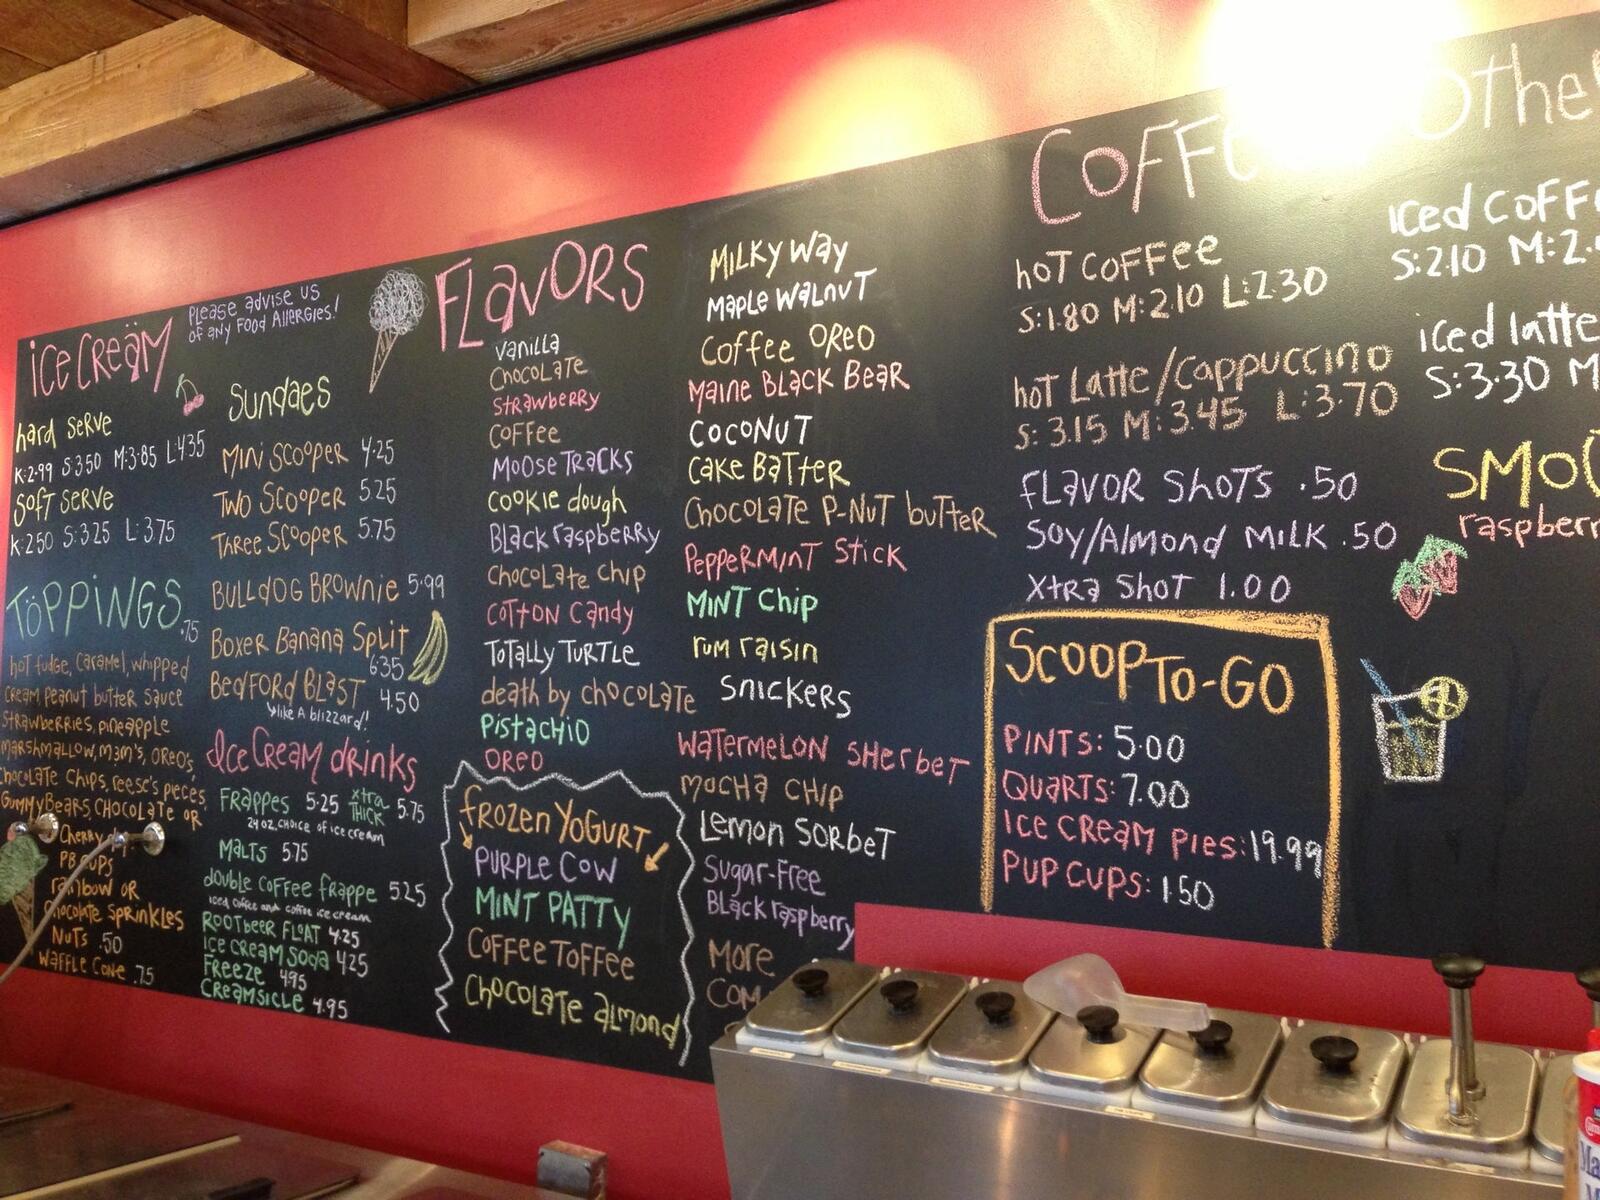 ice cream
Please advise us
of any Food Allergies!
hard serve
K:2.99 S:3.50 M:3.85 L:4.35
Soft Serve
K:2.50 S:3.25 L:3.75
Toppings .75
hot fudge, caramel, whipped
cream peanut butter sauce
strawberries, pineapple
marshmallow, m&m's, oreo's,
chocolate chips, reese's pieces,
Gummy Bears, chocolate or
Cherry
PB cups
rainbow or
chocolate sprinkles
Nuts .50
Waffle Cone .75
Sundaes
Mini Scooper 4.25
Two Scooper 5.25
Three Scooper 5.75
Bulldog Brownie 5.99
Boxer Banana Split
6.35
Bedford Blast 4.50
like a blizzard!
Ice Cream drinks
Frappes 5.25 xtra THICK 5.75
24 oz. choice of ice cream
Malts 5.75
double coffee frappe 5.25
iced coffee and coffee ice cream
Rootbeer Float 4.25
Ice Cream Soda 4.25
Freeze 4.95
Creamsicle 4.95
Flavors
vanilla
Chocolate
Strawberry
Coffee
Moose Tracks
Cookie dough
Black raspberry
Chocolate Chip
Cotton Candy
Totally Turtle
death by chocolate
Pistachio
Oreo
Frozen Yogurt
Purple Cow
Mint Patty
Coffee Toffee
Chocolate almond
Milky Way
Maple Walnut
Coffee Oreo
Maine Black Bear
Coconut
Cake Batter
Chocolate P-Nut butter
Peppermint Stick
Mint Chip
rum raisin
Snickers
Watermelon Sherbet
Mocha Chip
Lemon Sorbet
Sugar-Free
Black raspberry
More
Com
Coff
Othe
hot coffee
S:1.80 M:2.10 L:2.30
hot Latte/Cappuccino
S:3.15 M:3.45 L:3.70
Flavor Shots .50
Soy/Almond Milk .50
Xtra Shot 1.00
Scoop To-Go
Pints: 5.00
Quarts: 7.00
Ice Cream Pies: 19.99
Pup Cups: 1.50
iced coff
S:2.10 M:2.
iced latte
S:3.30 M
Smoo
raspberr